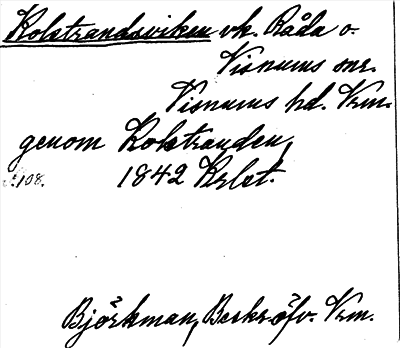 Kolstrandsviken vk. Råda o.
Visnums snr.
Visnums hd. Vrm.
genom Kolstranden,
s. 108. 1842 Krlst.
Björkman, Beskr. öfv. Vrm.